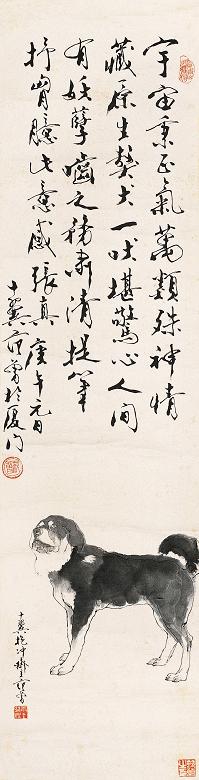 宇宙秉正氣萬類殊神情
藏原生獒犬一吠堪驚心人間
有妖孽嚙之務肅清提筆
抒胸臆此意感張真庚午元日
十翼范曾於厦门
十翼抱冲齋主范曾